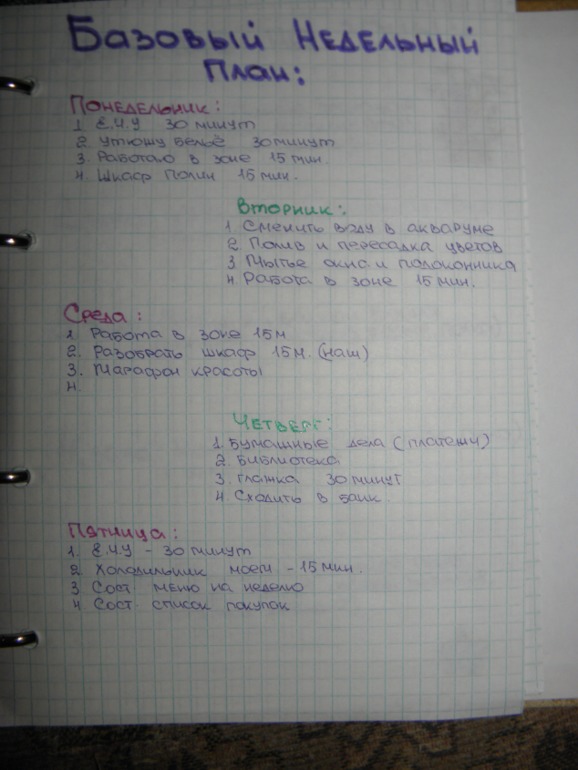 Базовый Недельный
План:
Понедельник:
1. Е.Ч.У 30 минут
2. Утюжу бельё 30 минут
3. Работаю в зоне 15 мин.
4. Шкаф Полин 15 мин.
Вторник:
1. Сменить воду в акваруме
2. Полив и пересадка цветов
3. Мытьё окна и подоконника
4. Работа в зоне 15 мин.
Среда:
1. Работа в зоне 15 м
2. Разобрать шкаф 15 м. (наш)
3. Марафон красоты
4.
Четверг:
1. Бумажные дела (платежи)
2. Библиотека
3. Глажка 30 минут
4. Сходить в банк.
Пятница:
1. Е.Ч.У - 30 минут
2. Холодильник моем - 15 мин.
3. Сост меню на неделю
4. Сост список покупок